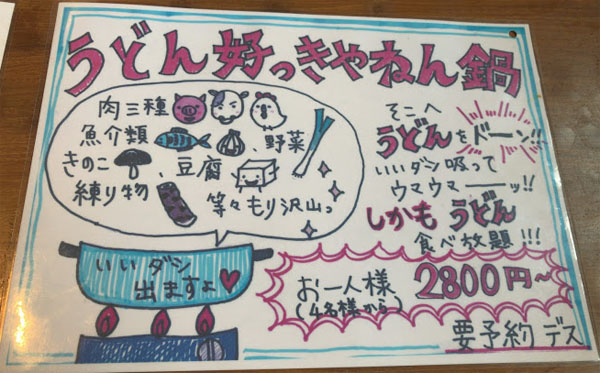 うどん好っきゃねん鍋
肉三種
魚介類、野菜
きのこ、豆腐
練り物
等々もり沢山っ
いいダシ
出ますよ
そこへ
うどんをドーン!!
いいダシ吸って
ウマウマーーッ!!
しかもうどん
食べ放題!!!
お一人様
(4名様から)
2800円~
要予約デス